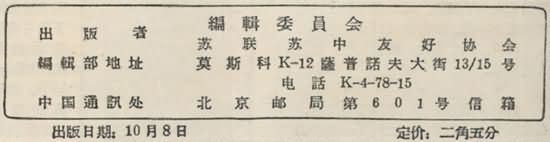 編輯委員会
出版者 苏联苏中友好协会
編輯部地址 莫斯科K-12薩普諾夫大街13/15号
电話 K-4-78-15
中国通訊处 北京邮局第601号信箱
出版日期: 10月8日 定价: 二角五分